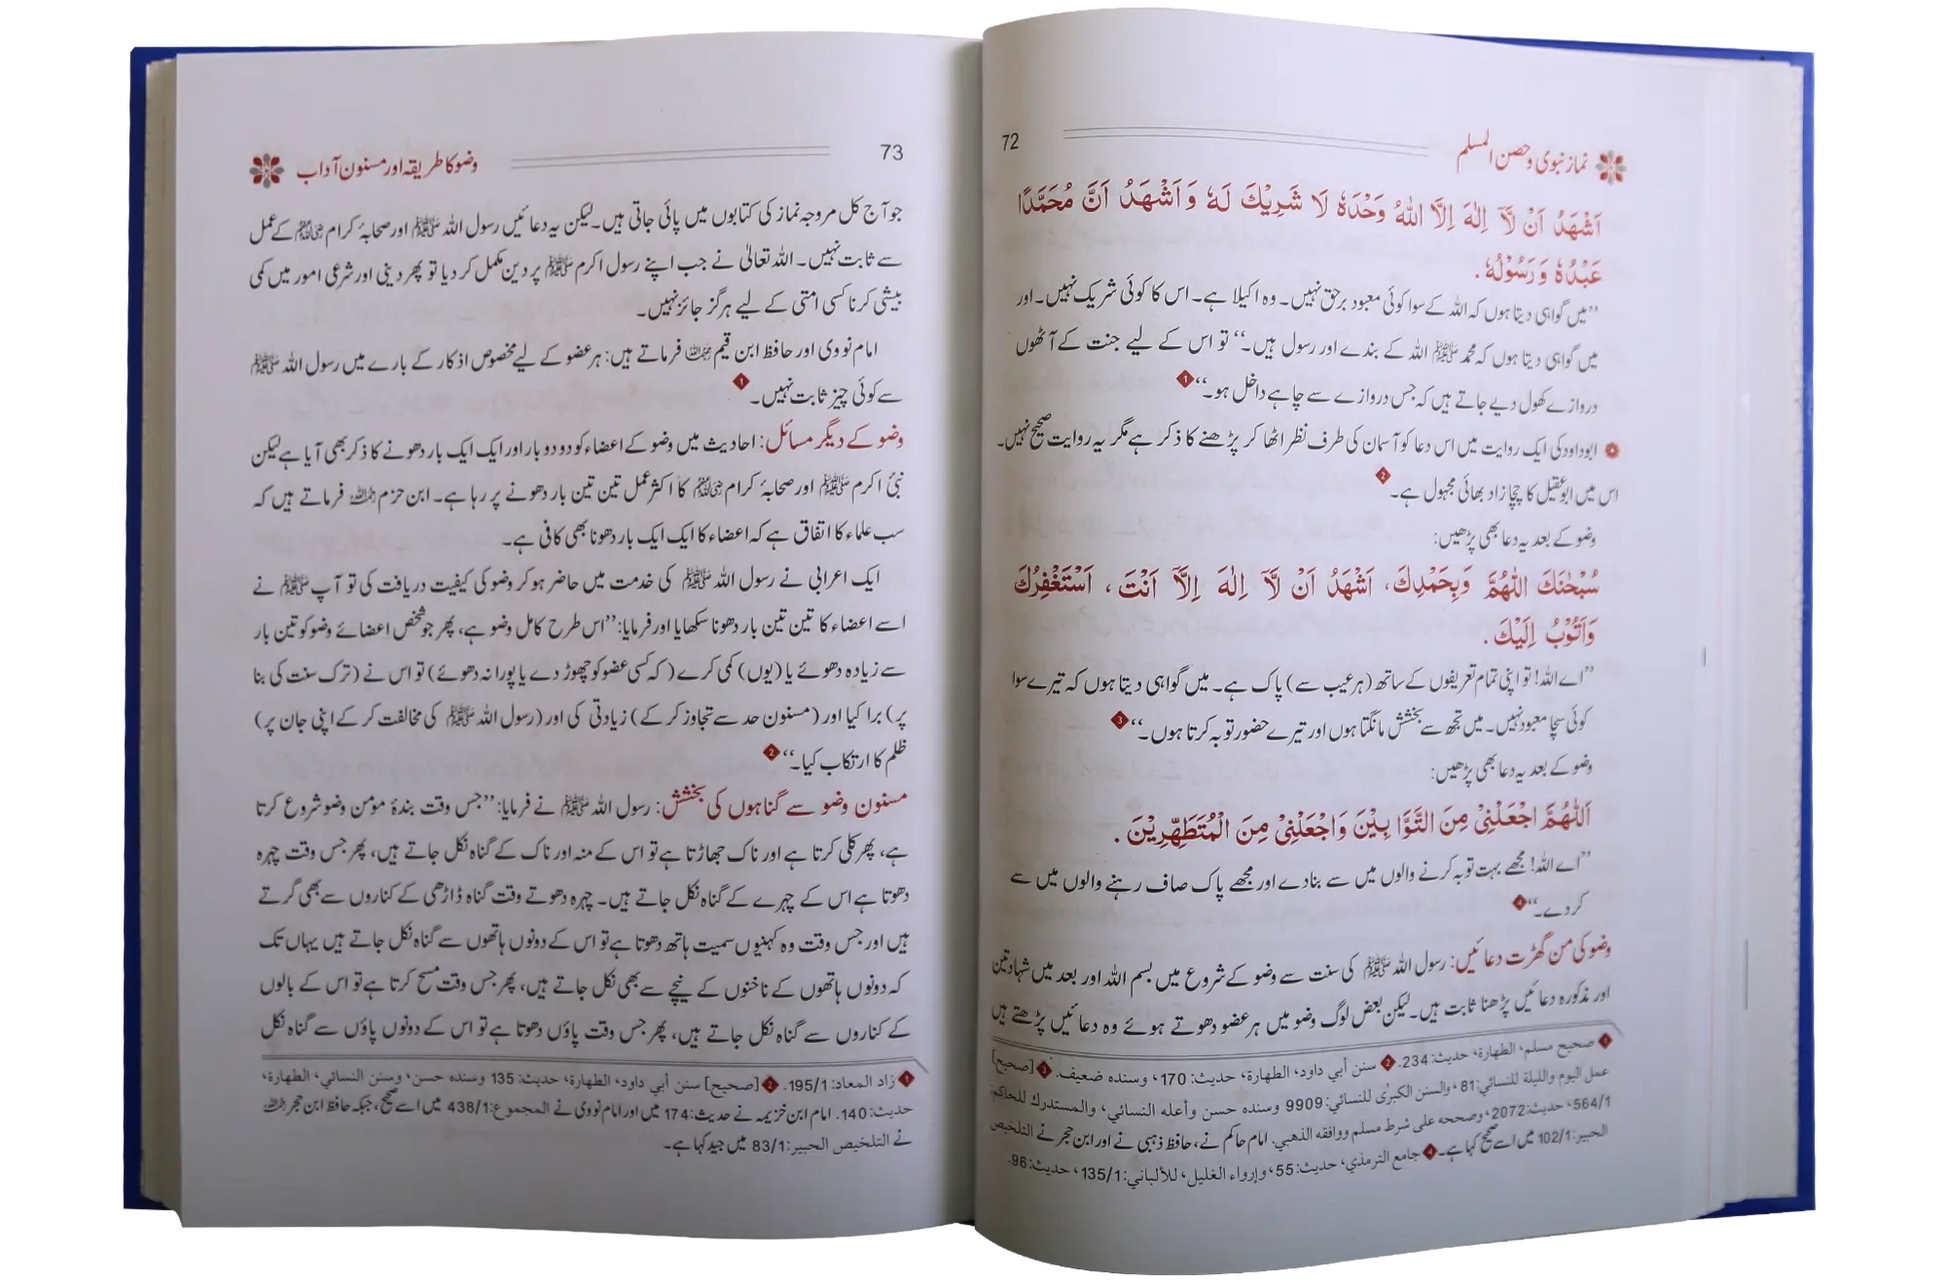 نماز نبوی و حصن المسلم 72
اَشْهَدُ اَنْ لَّآ اِلٰهَ اِلَّا اللّٰهُ وَحْدَهٗ لَا شَرِيْكَ لَهٗ وَاَشْهَدُ اَنَّ مُحَمَّدًا
عَبْدُهٗ وَرَسُوْلُهٗ.
’’میں گواہی دیتا ہوں کہ اللہ کے سوا کوئی معبود برحق نہیں۔ وہ اکیلا ہے۔ اس کا کوئی شریک نہیں۔ اور
میں گواہی دیتا ہوں کہ محمد ﷺ اللہ کے بندے اور رسول ہیں۔‘‘ تو اس کے لیے جنت کے آٹھوں
دروازے کھول دیے جاتے ہیں کہ جس دروازے سے چاہے داخل ہو۔‘‘ 1
ابوداود کی ایک روایت میں اس دعا کو آسمان کی طرف نظر اٹھا کر پڑھنے کا ذکر ہے مگر یہ روایت صحیح نہیں۔
اس میں ابوعقیل کا چچا زاد بھائی مجہول ہے۔ 2
وضو کے بعد یہ دعا بھی پڑھیں:
سُبْحٰنَكَ اللّٰهُمَّ وَبِحَمْدِكَ، اَشْهَدُ اَنْ لَّآ اِلٰهَ اِلَّآ اَنْتَ، اَسْتَغْفِرُكَ
وَاَتُوْبُ اِلَيْكَ.
’’اے اللہ! تو اپنی تمام تعریفوں کے ساتھ (ہر عیب سے) پاک ہے۔ میں گواہی دیتا ہوں کہ تیرے سوا
کوئی سچا معبود نہیں۔ میں تجھ سے بخشش مانگتا ہوں اور تیرے حضور توبہ کرتا ہوں۔‘‘ 3
وضو کے بعد یہ دعا بھی پڑھیں:
اَللّٰهُمَّ اجْعَلْنِيْ مِنَ التَّوَّابِيْنَ وَاجْعَلْنِيْ مِنَ الْمُتَطَهِّرِيْنَ.
’’اے اللہ! مجھے بہت توبہ کرنے والوں میں سے بنادے اور مجھے پاک صاف رہنے والوں میں سے
کردے۔‘‘ 4
وضو کی من گھڑت دعائیں: رسول اللہ ﷺ کی سنت سے وضو کے شروع میں بسم اللہ اور بعد میں شہادتین
اور مذکورہ دعائیں پڑھنا ثابت ہیں۔ لیکن بعض لوگ وضو میں ہر عضو دھوتے ہوئے وہ دعائیں پڑھتے ہیں
1 صحيح مسلم، الطهارة، حديث: 234. 2 سنن أبي داود، الطهارة، حديث: 170، وسنده ضعيف. 3 [صحيح]
عمل اليوم والليلة للنسائي: 81، والسنن الكبرٰى للنسائي: 9909 وسنده حسن وأعله النسائي، والمستدرك للحاكم:
564/1، حديث: 2072، وصححه على شرط مسلم ووافقه الذهبي. امام حاکم نے، حافظ ذہبی نے اور ابن حجر نے التلخيص
الحبير: 102/1 میں اسے صحیح کہا ہے۔ 4 جامع الترمذي، حديث: 55، وإرواء الغليل، للألباني: 135/1، حديث: 96.
73 وضو کا طریقہ اور مسنون آداب
جو آج کل مروجہ نماز کی کتابوں میں پائی جاتی ہیں۔ لیکن یہ دعائیں رسول اللہ ﷺ اور صحابۂ کرام رضی اللہ عنہم کے عمل
سے ثابت نہیں۔ اللہ تعالیٰ نے جب اپنے رسول اکرم ﷺ پر دین مکمل کر دیا تو پھر دینی اور شرعی امور میں کمی
بیشی کرنا کسی امتی کے لیے ہرگز جائز نہیں۔
امام نووی اور حافظ ابن قیم رحمہما اللہ فرماتے ہیں: ہر عضو کے لیے مخصوص اذکار کے بارے میں رسول اللہ ﷺ
سے کوئی چیز ثابت نہیں۔ 1
وضو کے دیگر مسائل: احادیث میں وضو کے اعضاء کو دو دو بار اور ایک ایک بار دھونے کا ذکر بھی آیا ہے لیکن
نبی اکرم ﷺ اور صحابۂ کرام رضی اللہ عنہم کا اکثر عمل تین تین بار دھونے پر رہا ہے۔ ابن حزم رحمہ اللہ فرماتے ہیں کہ
سب علماء کا اتفاق ہے کہ اعضاء کا ایک ایک بار دھونا بھی کافی ہے۔
ایک اعرابی نے رسول اللہ ﷺ کی خدمت میں حاضر ہو کر وضو کی کیفیت دریافت کی تو آپ ﷺ نے
اسے اعضاء کا تین تین بار دھونا سکھایا اور فرمایا: ’’اس طرح کامل وضو ہے، پھر جو شخص اعضائے وضو کو تین بار
سے زیادہ دھوئے یا (یوں) کمی کرے (کہ کسی عضو کو چھوڑ دے یا پورا نہ دھوئے) تو اس نے (ترک سنت کی بنا
پر) برا کیا اور (مسنون حد سے تجاوز کر کے) زیادتی کی اور (رسول اللہ ﷺ کی مخالفت کر کے اپنی جان پر)
ظلم کا ارتکاب کیا۔‘‘ 2
مسنون وضو سے گناہوں کی بخشش: رسول اللہ ﷺ نے فرمایا: ’’جس وقت بندۂ مومن وضو شروع کرتا
ہے، پھر کلی کرتا ہے اور ناک جھاڑتا ہے تو اس کے منہ اور ناک کے گناہ نکل جاتے ہیں، پھر جس وقت چہرہ
دھوتا ہے اس کے چہرے کے گناہ نکل جاتے ہیں۔ چہرہ دھوتے وقت گناہ ڈاڑھی کے کناروں سے بھی گرتے
ہیں اور جس وقت وہ کہنیوں سمیت ہاتھ دھوتا ہے تو اس کے دونوں ہاتھوں سے گناہ نکل جاتے ہیں یہاں تک
کہ دونوں ہاتھوں کے ناخنوں کے نیچے سے بھی نکل جاتے ہیں، پھر جس وقت مسح کرتا ہے تو اس کے بالوں
کے کناروں سے گناہ نکل جاتے ہیں، پھر جس وقت پاؤں دھوتا ہے تو اس کے دونوں پاؤں سے گناہ نکل
1 زاد المعاد: 195/1. 2 [صحيح] سنن أبي داود، الطهارة، حديث: 135 وسنده حسن، وسنن النسائي، الطهارة،
حديث: 140. امام ابن خزیمہ نے حدیث: 174 میں اور امام نووی نے المجموع: 438/1 میں اسے صحیح، جبکہ حافظ ابن حجر رحمہ اللہ
نے التلخيص الحبير: 83/1 میں جید کہا ہے۔